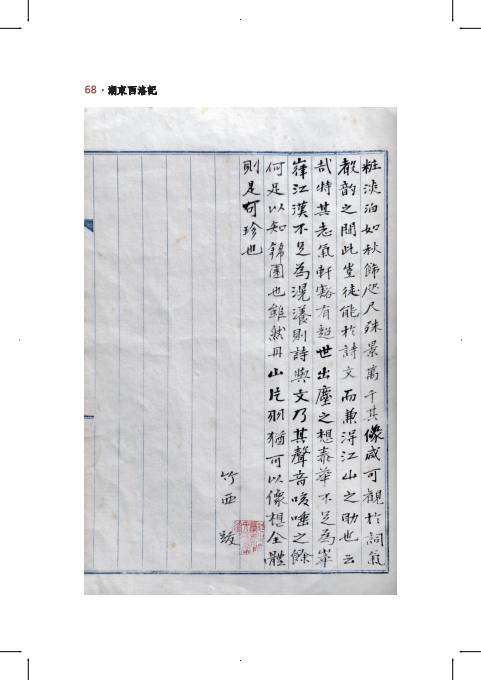 68 · 湖東西洛記
粧淡泊如秋飾咫尺殊景萬千其像咸可觀於詞氣
聲韵之間此豈徒能於詩文而兼得江山之助也云
哉特其志氣軒豁有超世出塵之想泰華不足為崒
嵂江漢不足為滉瀁則詩與文乃其聲音咳唾之餘
何足以知錦園也雖然丹山片羽猶可以像想全體
則是可珍也
竹西 跋